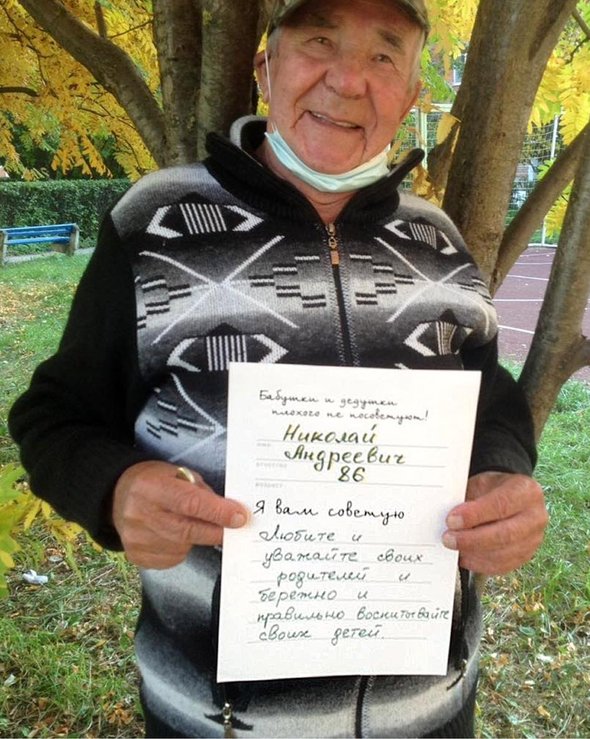 Бабушки и дедушки
плохого не посоветуют!
имя: Николай
отчество Андреевич
возраст: 86
Я вам советую
Любите и
уважайте своих
родителей и
бережно и
правильно воспитывайте
своих детей.